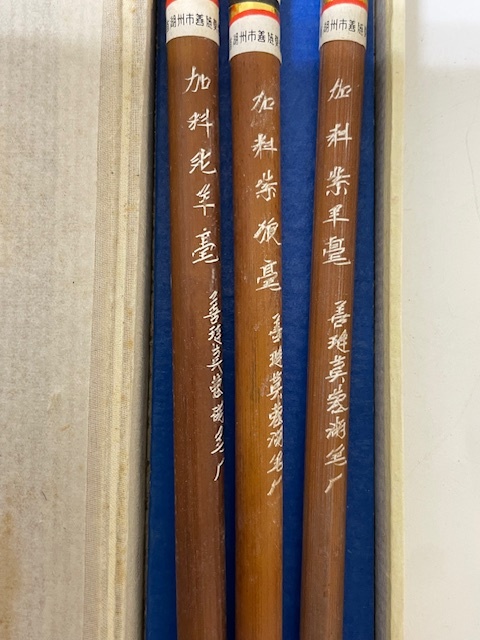 湖州市善琏
加料纯羊毫
善琏莫蓉湖笔厂
湖州市善琏
加料紫须毫
善琏莫蓉湖笔厂
湖州市善琏
加料紫羊毫
善琏莫蓉湖笔厂